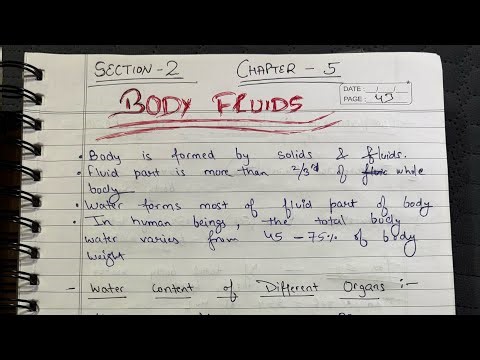 SECTION-2 CHAPTER - 5
DATE: / /
PAGE: 45
BODY FLUIDS
• Body is formed by solids & fluids.
• Fluid part is more than 2/3rd of whole
body
• Water forms most of fluid part of body
• In human beings, the total body
water varies from 45 - 75% of body
weight
- Water Content of Different Organs :-